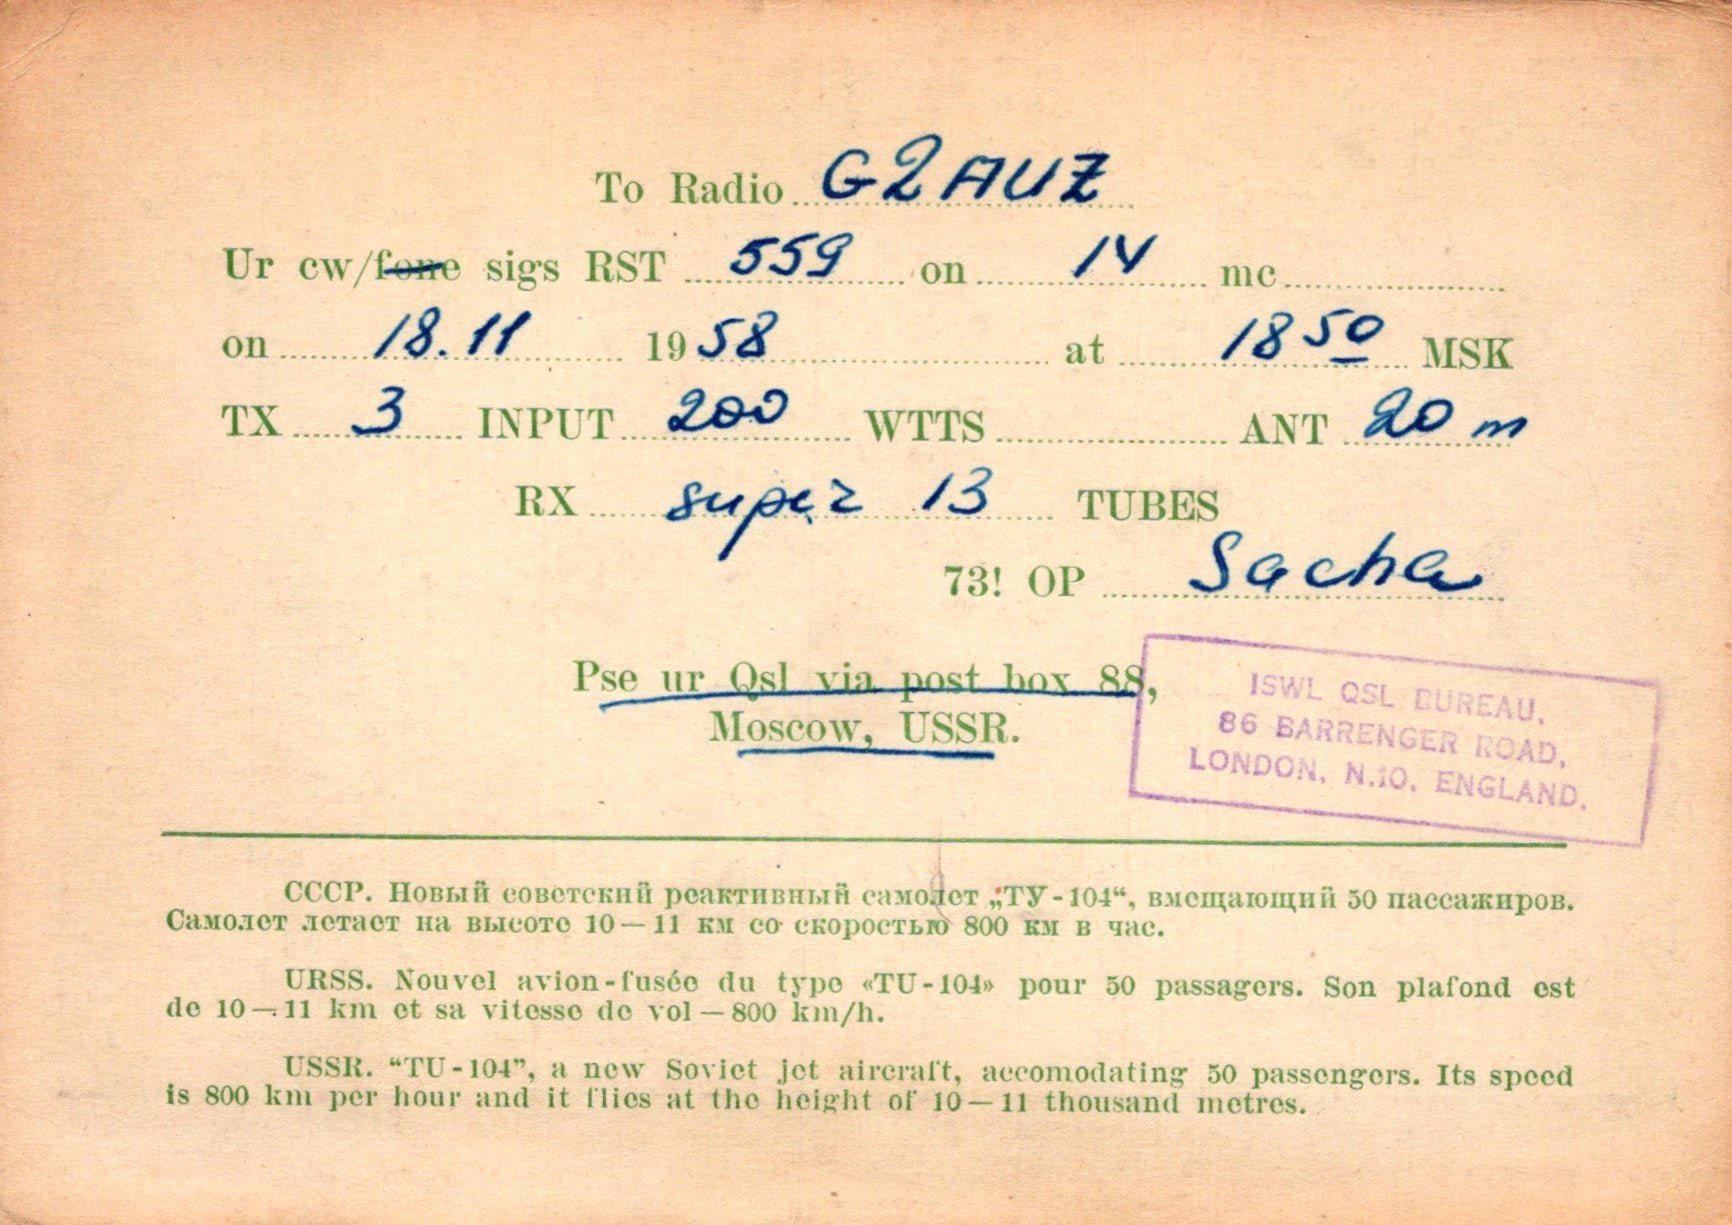 To Radio G2AUZ
Ur cw/fone sigs RST 559 on 14 mc
on 18.11 1958 at 18 50 MSK
TX 3 INPUT 200 WTTS ANT 20 m
RX super 13 TUBES
73! OP Sacha
Pse ur Qsl via post box 88,
Moscow, USSR.
ISWL QSL BUREAU.
86 BARRENGER ROAD,
LONDON, N.10, ENGLAND.
СССР. Новый советский реактивный самолет „ТУ-104“, вмещающий 50 пассажиров.
Самолет летает на высоте 10—11 км со скоростью 800 км в час.
URSS. Nouvel avion-fusée du type «TU-104» pour 50 passagers. Son plafond est
de 10—11 km et sa vitesse de vol — 800 km/h.
USSR. “TU-104”, a new Soviet jet aircraft, accomodating 50 passengers. Its speed
is 800 km per hour and it flies at the height of 10—11 thousand metres.